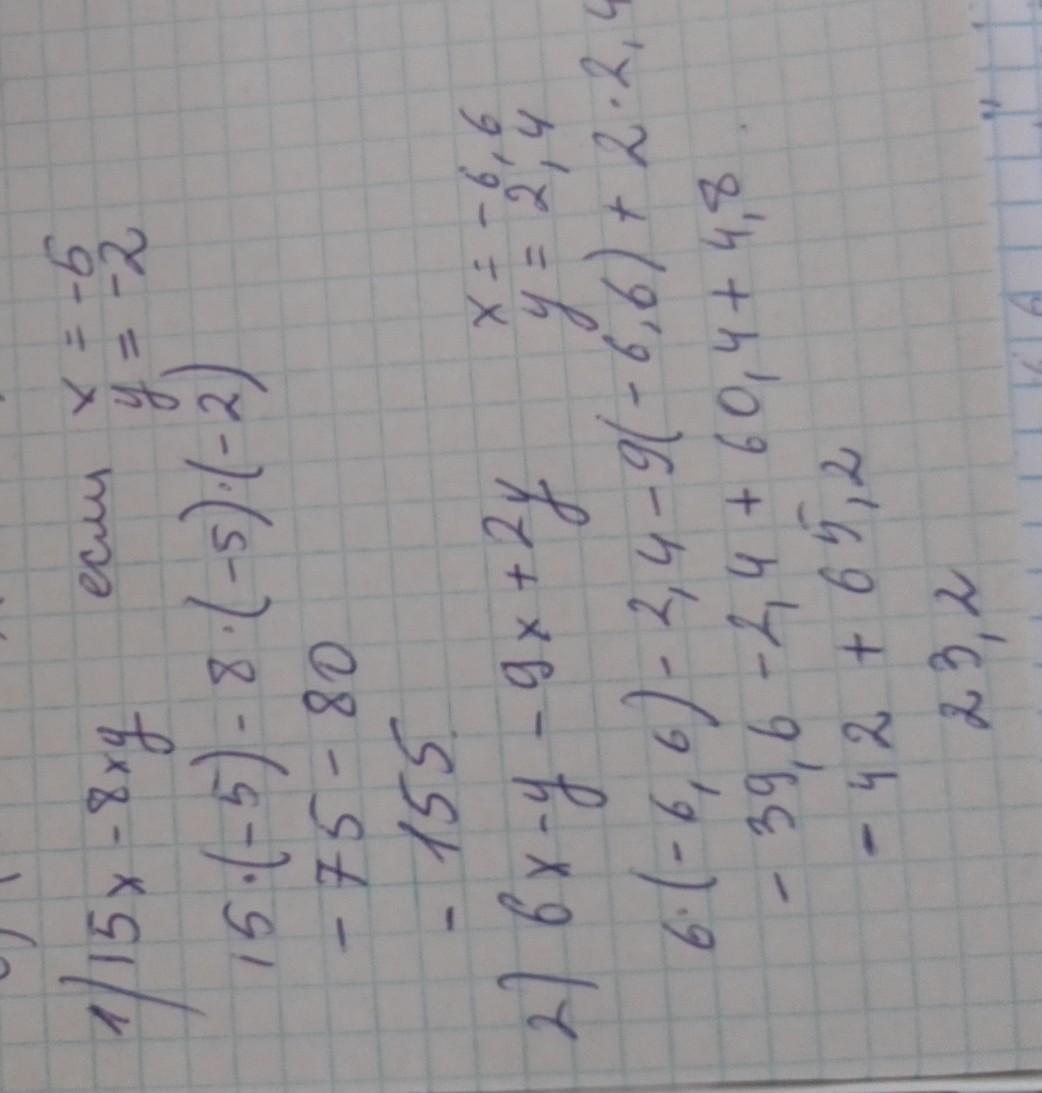 1) 15x - 8xy если x = -5
y = -2
15·(-5) - 8·(-5)·(-2)
- 75 - 80
- 155
2) 6x - y - 9x + 2y x = -6,6
y = 2,4
6·(-6,6) - 2,4 - 9(-6,6) + 2·2,4
- 39,6 - 2,4 + 60,4 + 4,8
- 42 + 65,2
23,2